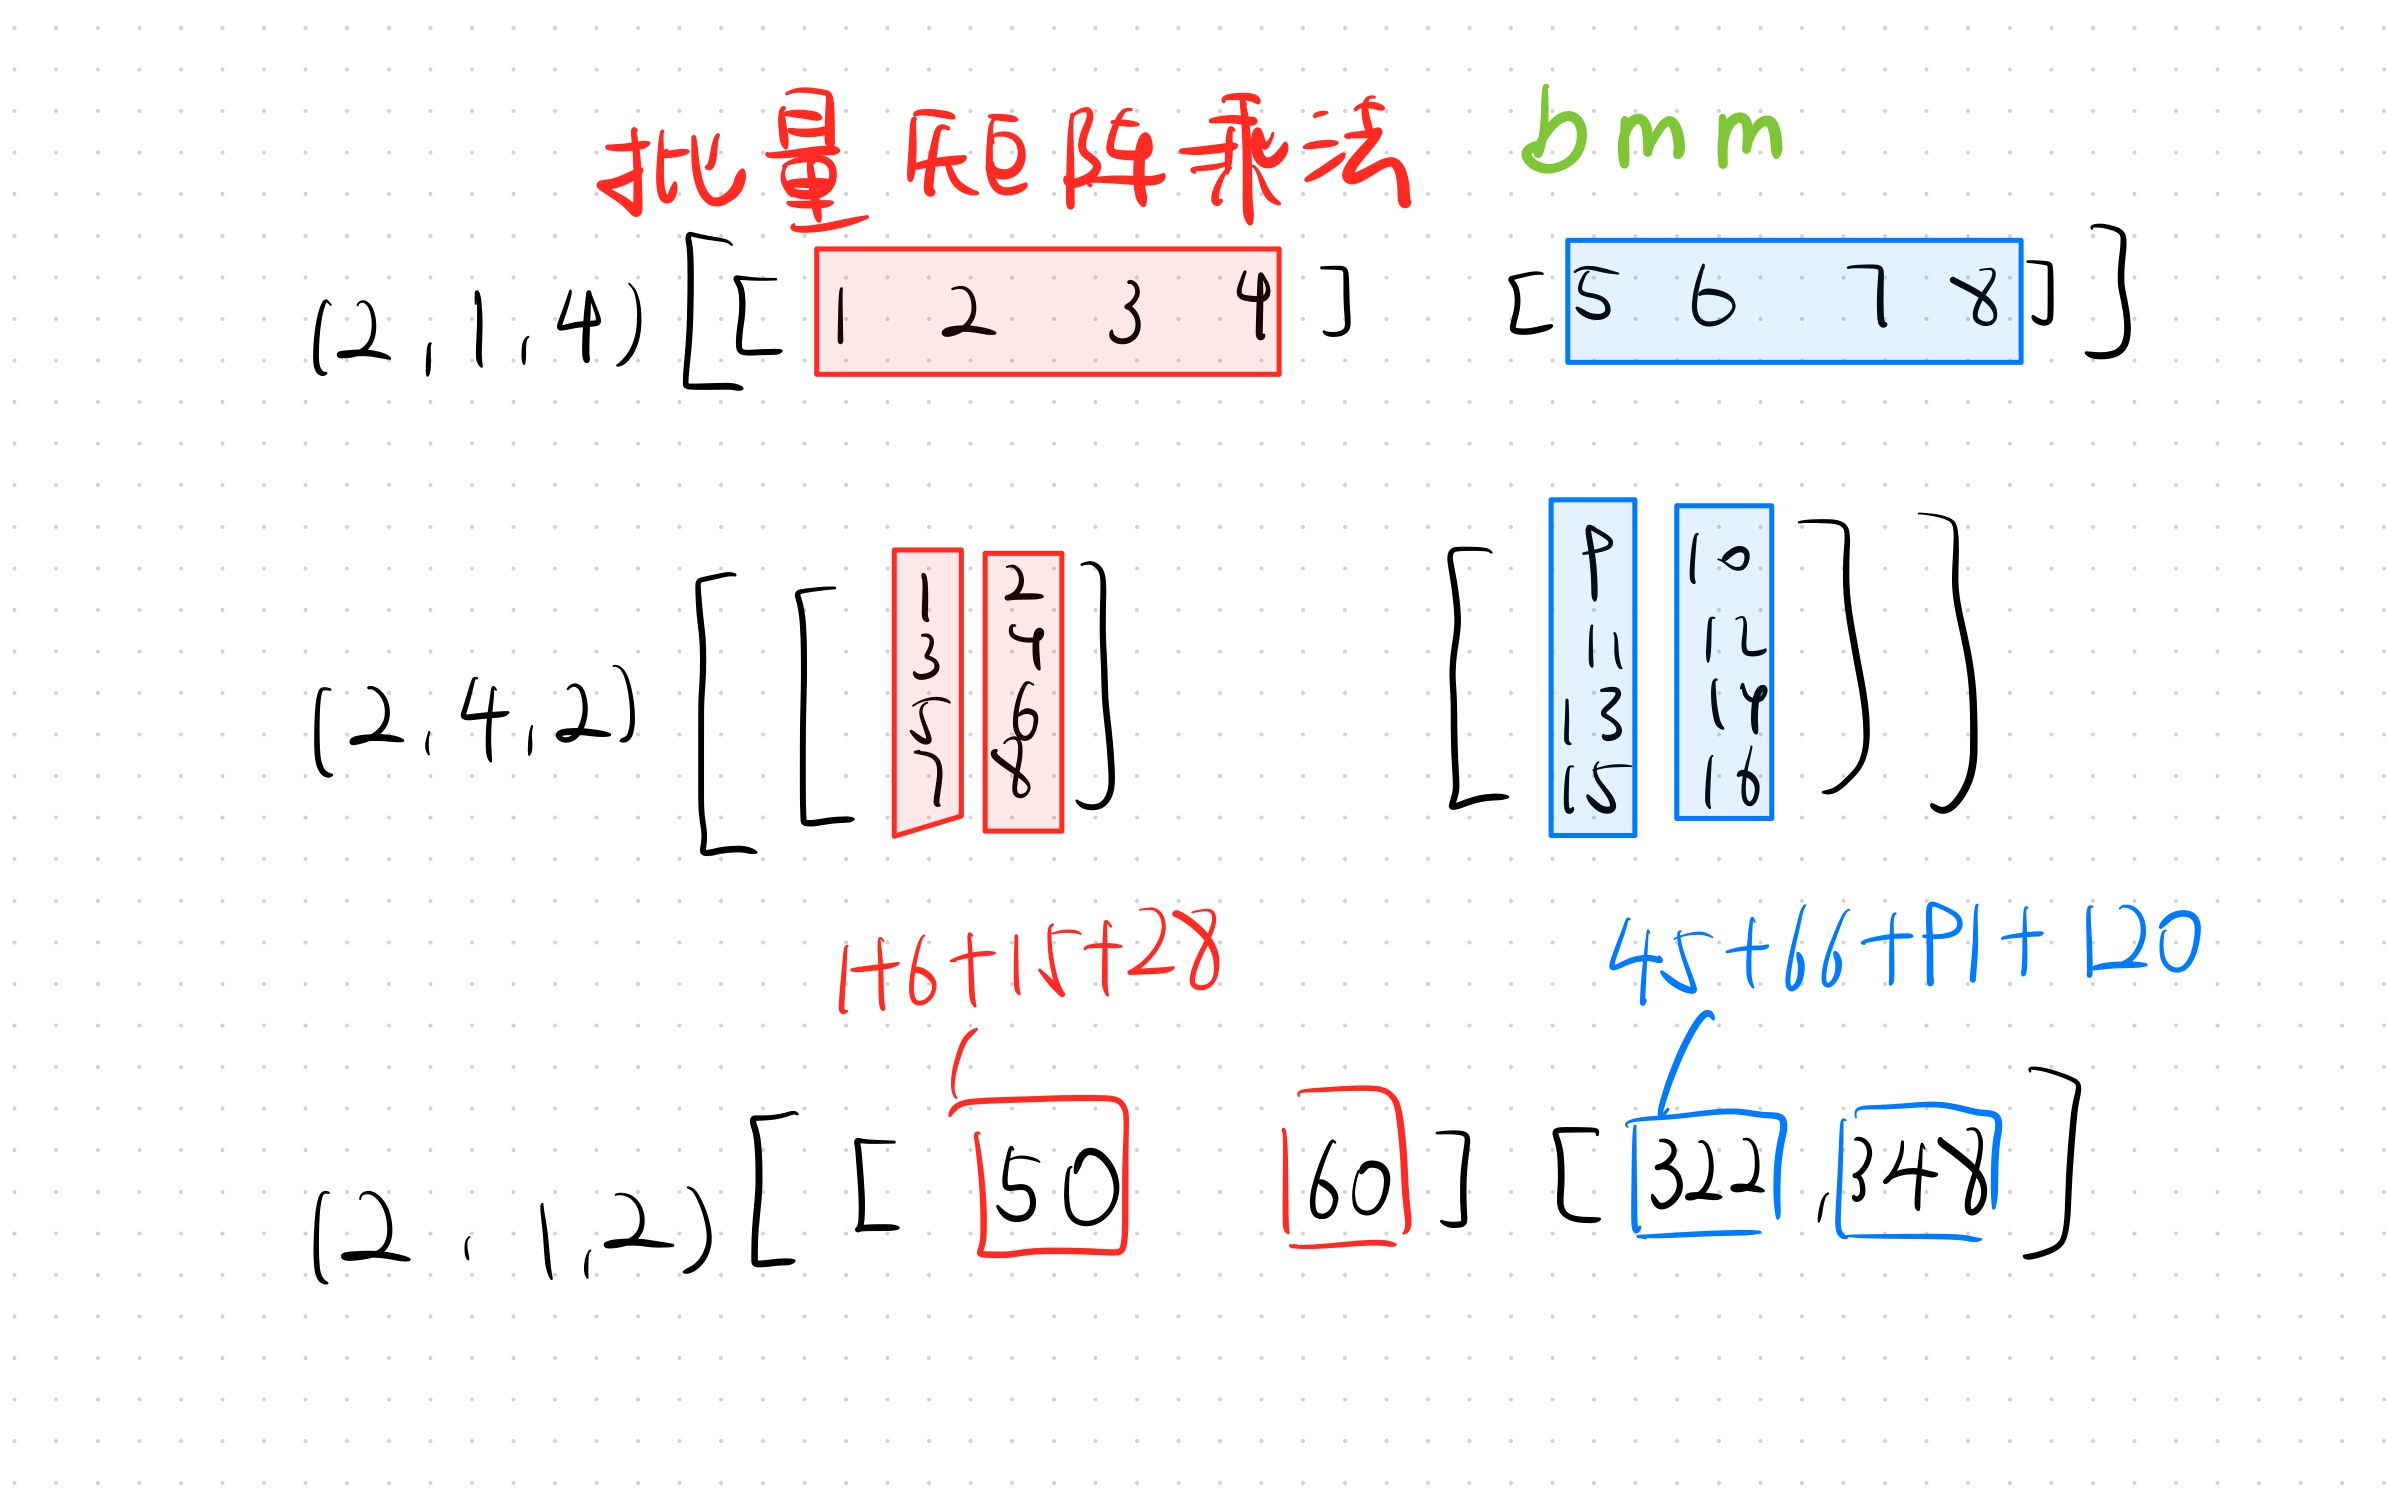 批量矩阵乘法 bmm
(2,1,4) [[ 1 2 3 4 ] [ 5 6 7 8 ]]
(2,4,2) [[ 1 2 ] [ 9 10 ]]
3 4 11 12
5 6 13 14
7 8 15 16
1+6+15+28 45+66+91+120
(2,1,2) [[ 50 60 ] [ 322,348 ]